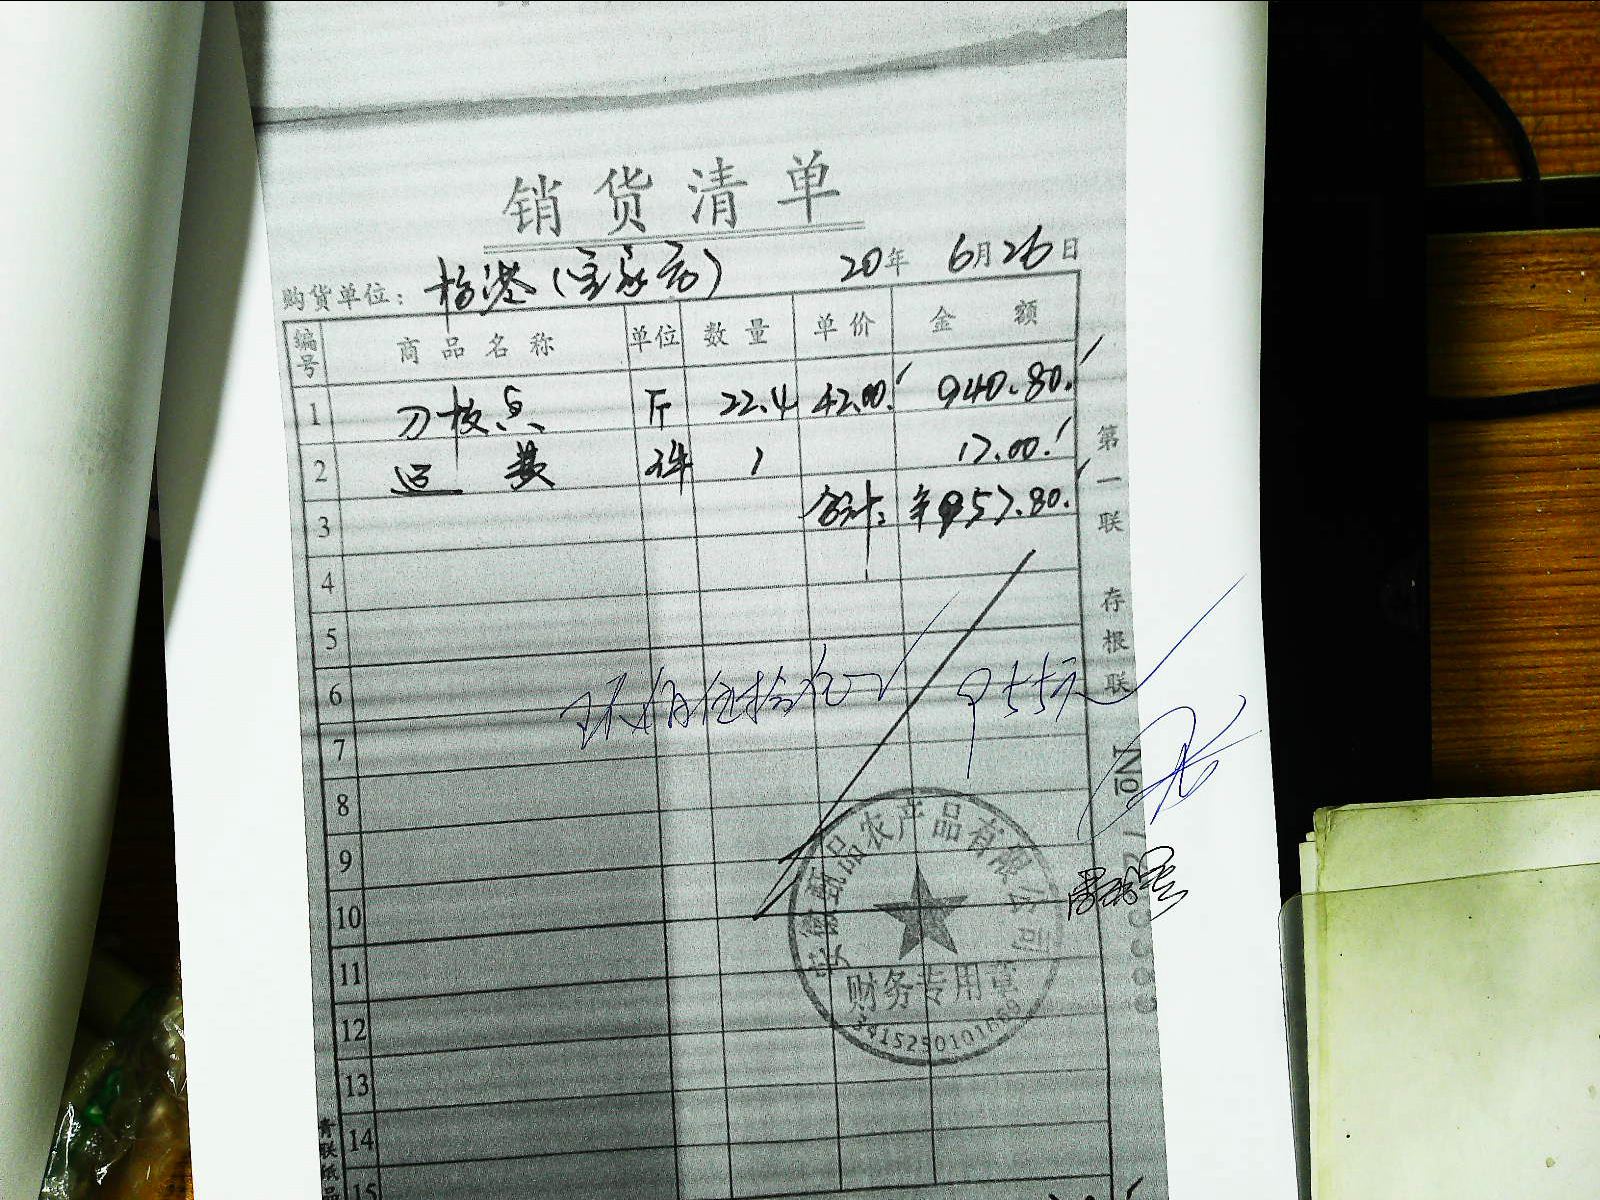 销货清单
购货单位： 20年 6月26日
编号 商品名称 单位 数量 单价 金额
1 刀板 斤 22.4 42.00 940.80
2 运费 件 1 17.00
3 合计: ¥957.80
4
5
6 955元
7
8
9
10
11
12
13
14
15
第一联 存根联 №
品农产品有限公司
财务专用章
青联纸品